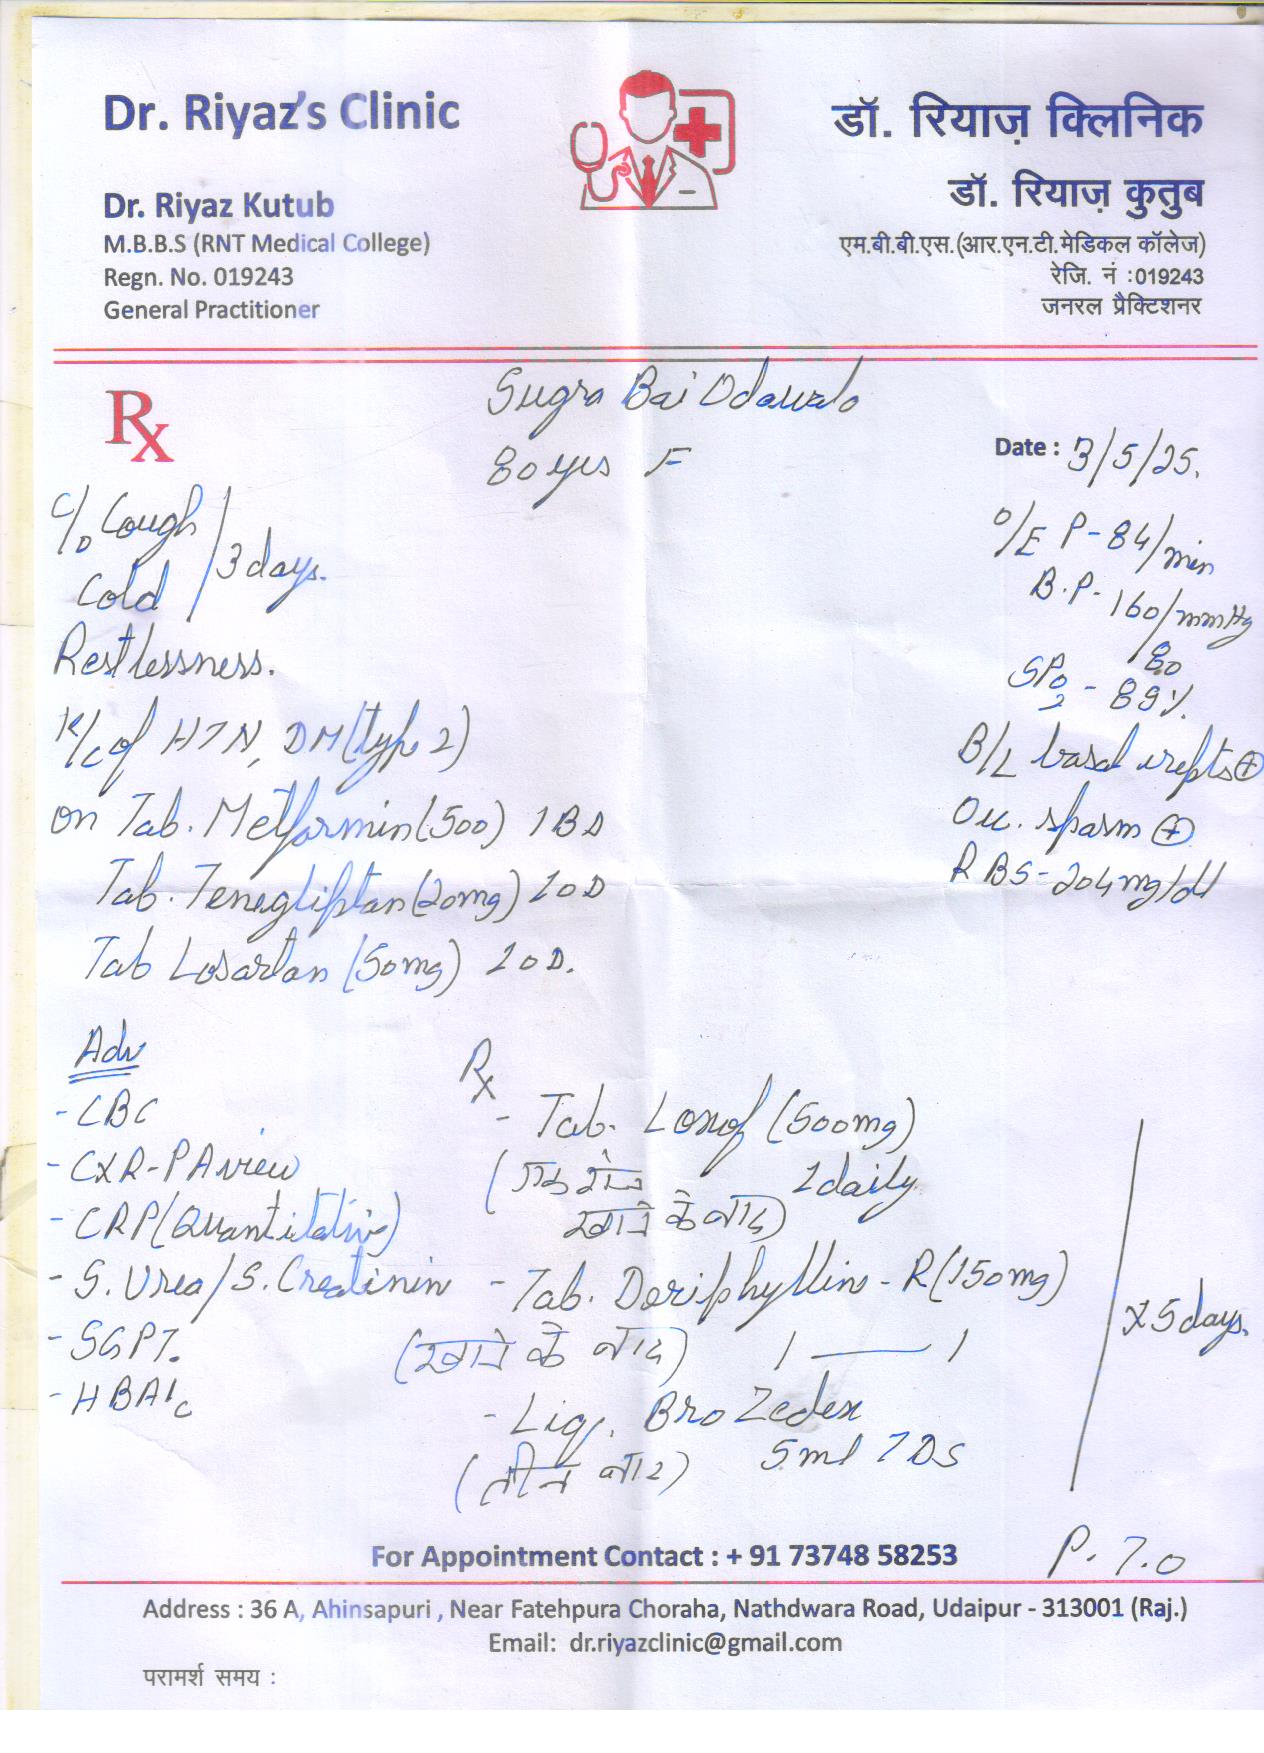 Dr. Riyaz's Clinic
डॉ. रियाज़ क्लिनिक
Dr. Riyaz Kutub
डॉ. रियाज़ कुतुब
M.B.B.S (RNT Medical College)
एम.बी.बी.एस.(आर.एन.टी.मेडिकल कॉलेज)
Regn. No. 019243
रेजि. नं :019243
General Practitioner
जनरल प्रैक्टिशनर
Rx
Sugra Bai
80 yrs F
Date : 3/5/25.
C/O Cough
Cold / 3 days.
Restlessness.
K/C of HTN, DM (type 2)
on Tab. Metformin (500) 1 BD
Tab. Tenegliptan (20mg) 1 OD
Tab Losartan (50mg) 1 OD.
O/E P- 84/min
B.P- 160/80 mmHg
SPO2 - 89%.
B/L basal crepts ⊕
Occ. spasm ⊕
RBS - 204 mg/dl
Adv
- CBC
- CXR - PA view
- CRP (Quantitative)
- S. Urea / S. Creatinin
- SGPT.
- HBA1c
Rx
- Tab. (500mg)
1 daily
(एक रोज
खाने के बाद)
- Tab. Deriphyllin - R (150mg)
(खाने के बाद) 1 — 1
- Liq. Bro Zedex
(तीन बार) 5ml TDS
x 5 days.
P.T.O
For Appointment Contact : + 91 73748 58253
Address : 36 A, Ahinsapuri , Near Fatehpura Choraha, Nathdwara Road, Udaipur - 313001 (Raj.)
Email: dr.riyazclinic@gmail.com
परामर्श समय :